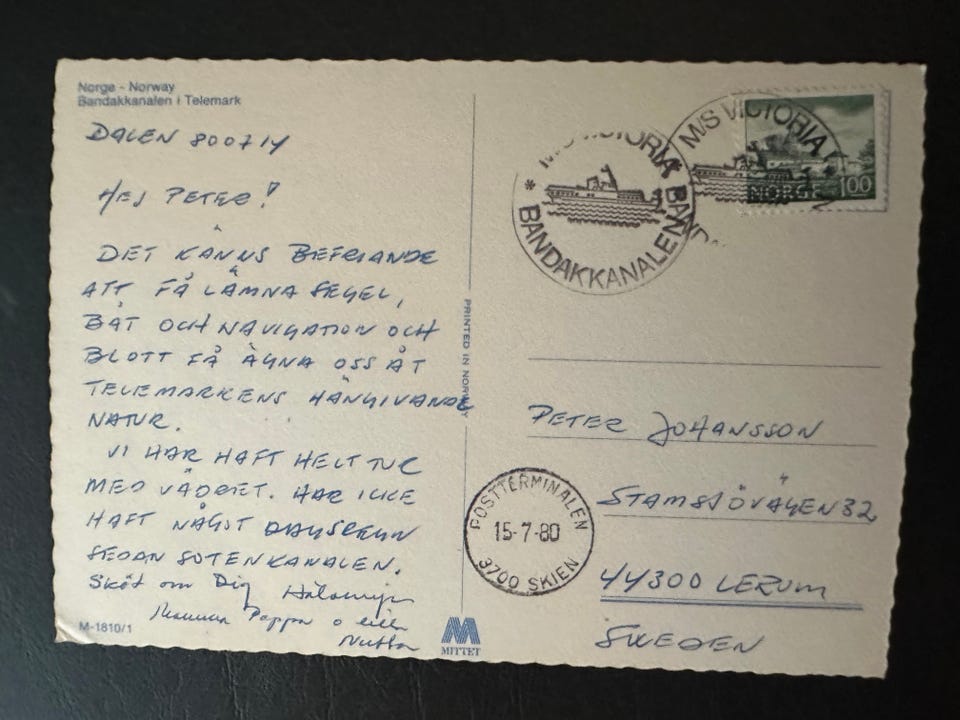 Norge - Norway
Bandakkanalen i Telemark
DALEN 800714
HEJ PETER!
DET KÄNNS BEFRIANDE
ATT FÅ LÄMNA SEGEL,
BÅT OCH NAVIGATION OCH
BLOTT FÅ ÄGNA OSS ÅT
TELEMARKENS HÄNGIVANDE
NATUR.
VI HAR HAFT HELT TUR
MED VÄDRET. HAR ICKE
HAFT NÅGOT DAGSREGN
SEDAN SOTENKANALEN.
Sköt om Dig
Mamma Pappa o lilla
M-1810/1
PRINTED IN NORWAY
MITTET
M/S VICTORIA
* BANDAKKANALEN
M/S VICTORIA
NORGE 100
PETER JOHANSSON
STAMSJÖVÄGEN 32
44300 LERUM
SWEDEN
POSTTERMINALEN
15-7-80
3700 SKIEN